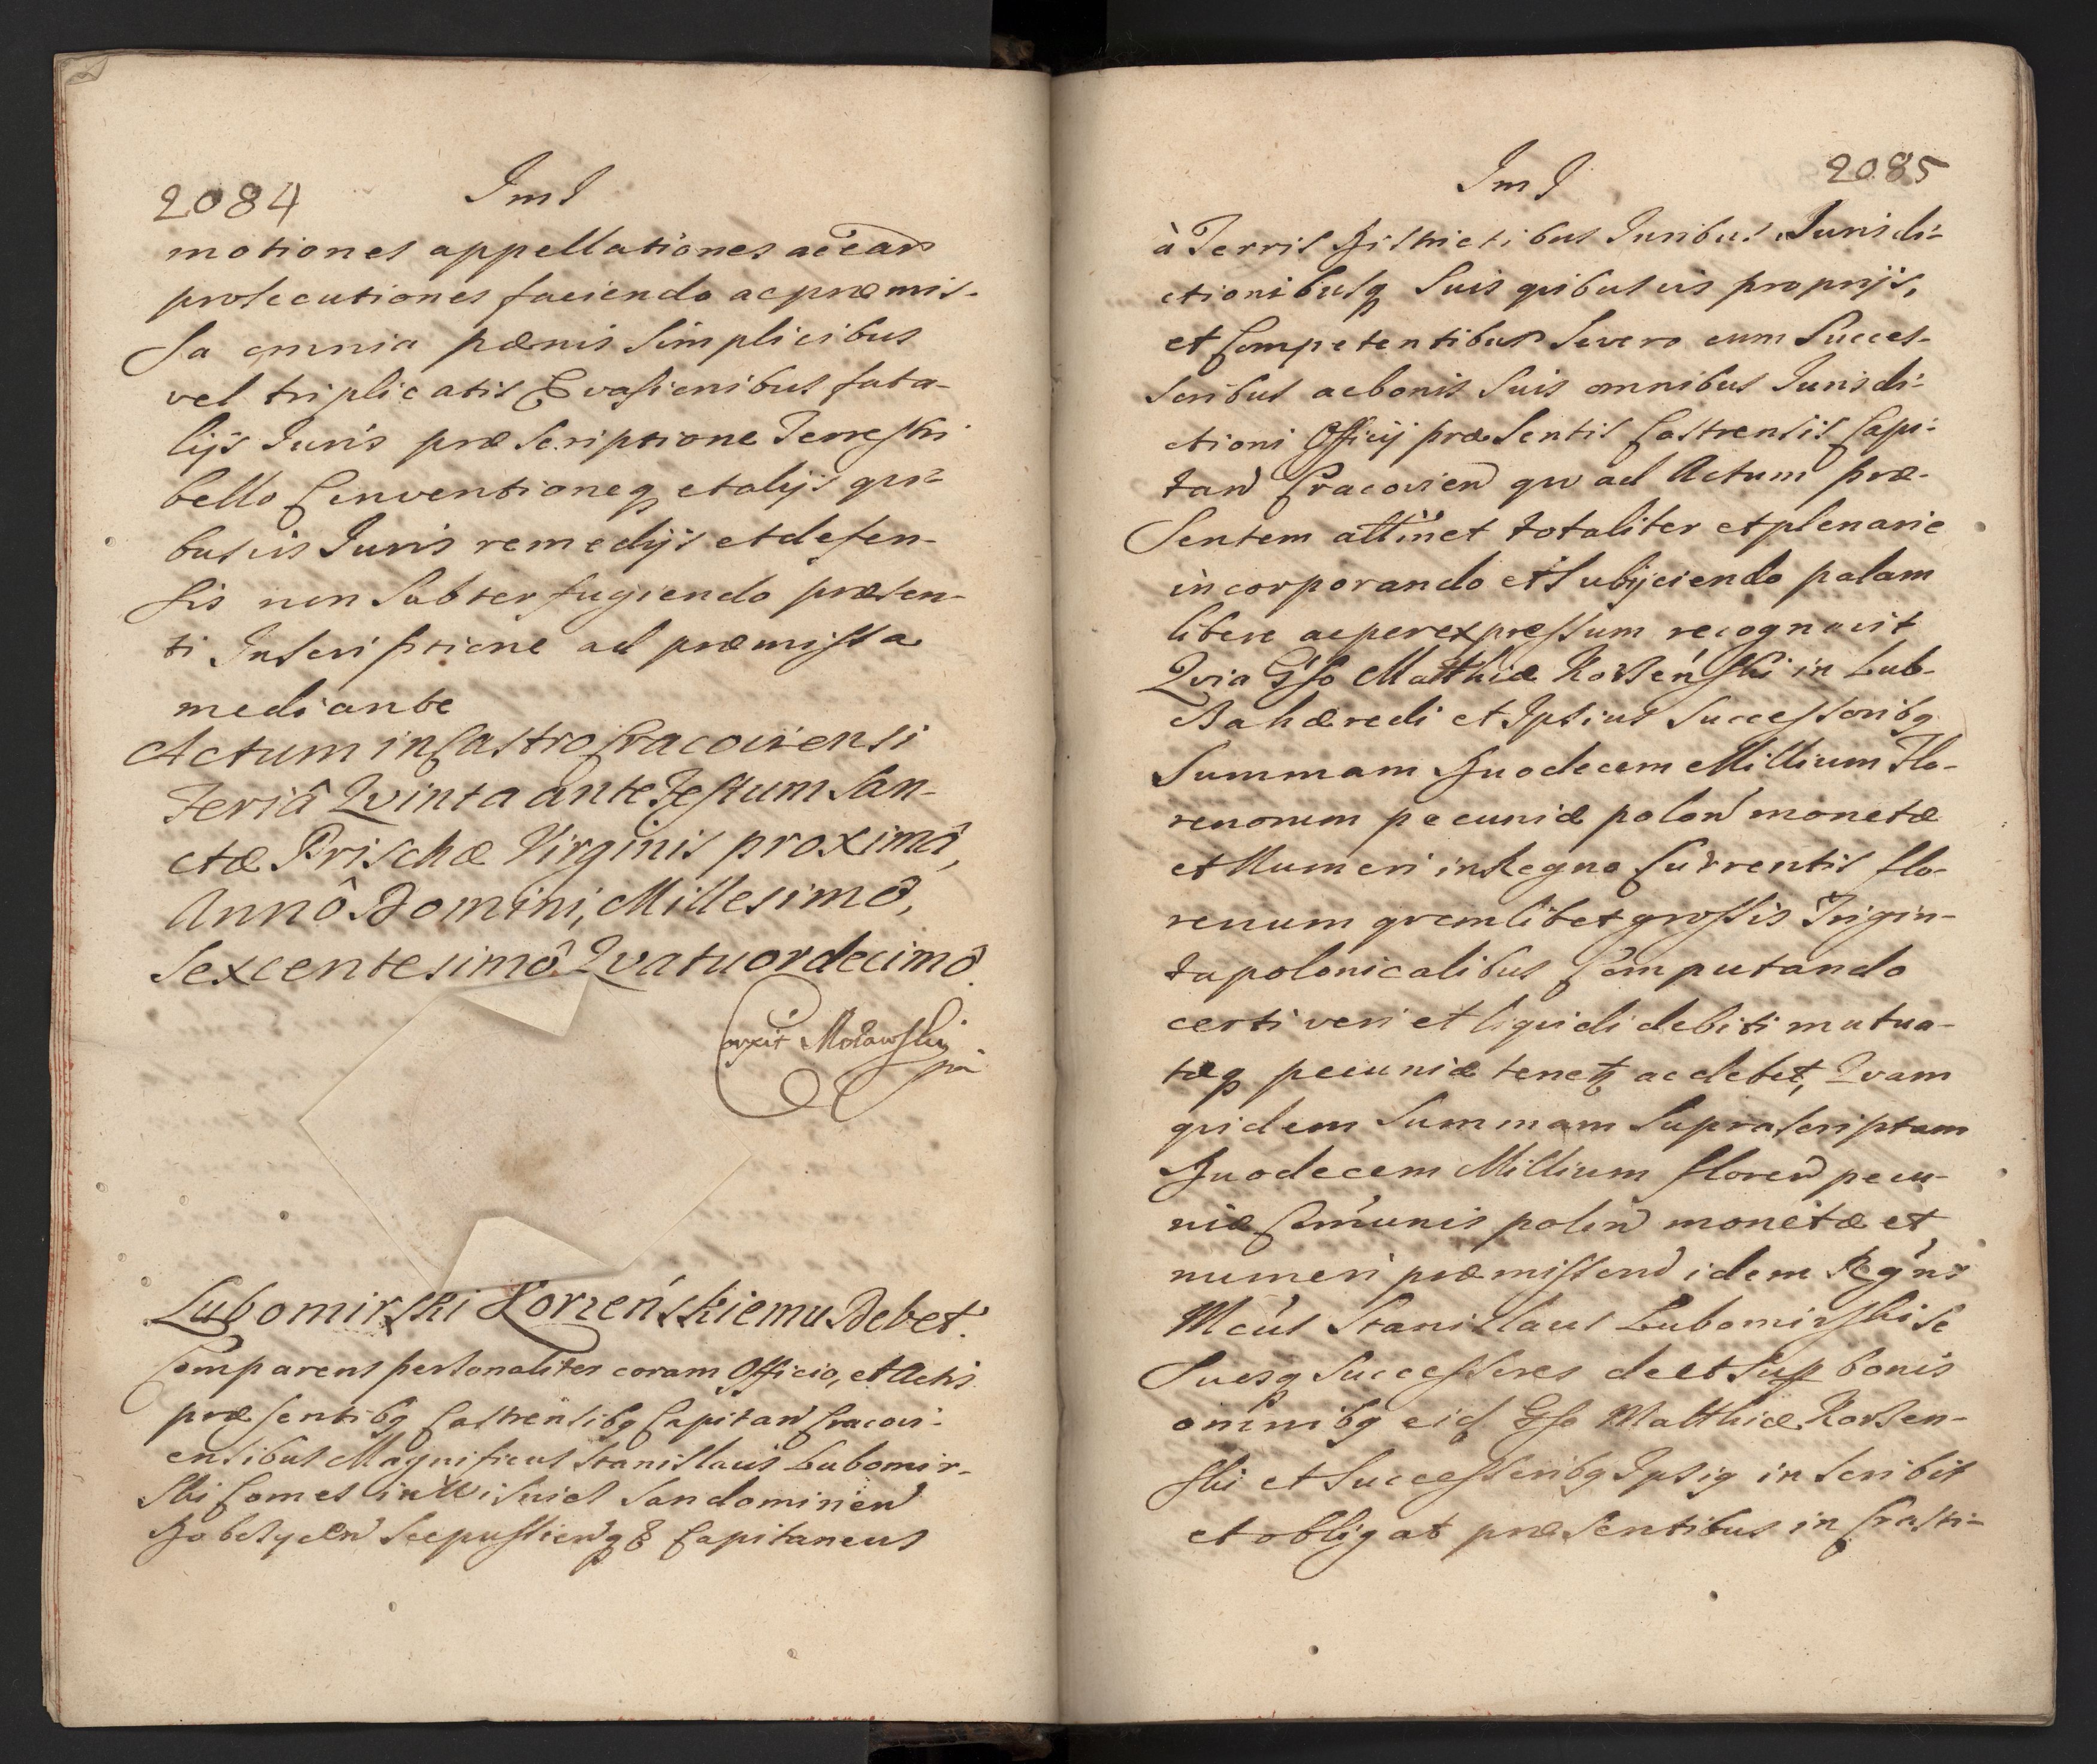 2084 ImJ
motiones appellationes ac ear̃
prosecutiones faciendo ac præmis-
sa omnia pænis simplicibus
vel triplicatis Evasionibus fata-
lijs Juris præscriptione Terrestri
bello Conventioneq; et alijs qui-
busvis Juris remedijs et defen-
sis non subterfugiendo præsen-
ti Inscriptione ad præmissa
mediante
Actum in Castro Cracoviensi
Feriâ Qvinta ante Festum San-
ctæ Prischæ Virginis proximâ,
Annô Domini, Millesimô,
Sexcentesimô Qvatuordecimô.
Correxit Molawski
mp
Lubomirski Korzeńskiemu Debet.
Comparens personaliter coram Officio, et Actis
præsentibq Castrensibq Capitañ Cracovi-
ensibus Magnificus Stanislaus Lubomir-
ski Comes in Wisnicz Sandomirieñ
Dobczyceñ Scepusieñq; & Capitaneus
ImJ 2085
à Terris Districtibus Juribus Jurisdi-
ctionibusq; suis quibusvis proprijs,
et Competentibus se vero cum Succes-
soribus ac bonis suis omnibus Jurisdi-
ctioni Officij præsentis Castrensis Capi-
tañ Cracovieñ qvo ad Actum præ-
sentem attinet totaliter et plenarie
incorporando et subijciendo palam
libere ac per expressum recognovit
Qvia Gso Matthiæ Korzeński in Lub-
Bahæredi et Ipsius Successoribq
Summam Duodecem Millium Flo-
renorum pecuniæ poloñ monetæ
et Numeri in Regno Currentis flo-
renum qvemlibet grossis Trigin-
ta polonicalibus Computando
certi veri et liquidi debiti mutua-
tæq; pecuniæ tenetꝫ ac debet, Qvam
quidem Summam suprascriptam
Duodecem Millium floreñ pecu-
niæ Cõmunis poloñ monetæ et
numeri præmissorũ idem Rgns
Mcus Stanislaus Lubomirski se
Suosq; Successores de et sup bonis
omnibq eid Gso Matthiæ Korzen-
ski et Successoribq Ipsiq inscribit
et obligat præsentibus in Crasti-